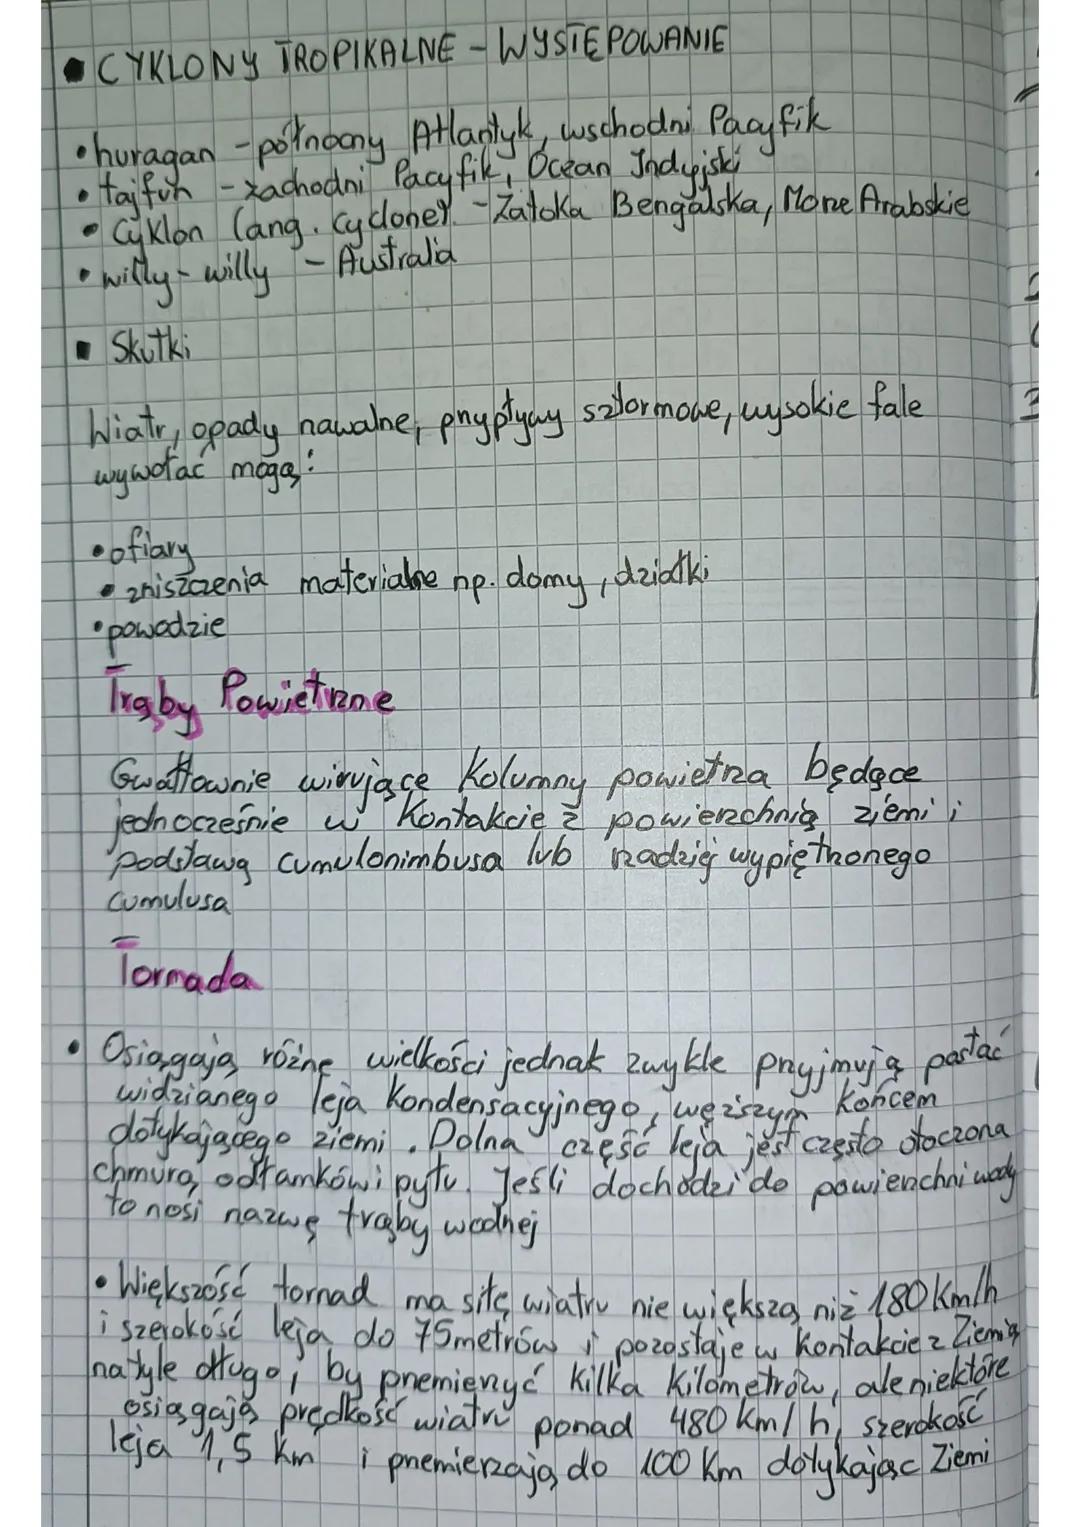 CYKLONY TROPIKALNE - WYSTĘPOWANIE
• huragan - północny Atlantyk, wschodni Pacyfik
• tajfun - zachodni Pacyfik, Ocean Indyjski
• Cyklon (ang. cyclone) - Zatoka Bengalska, Morze Arabskie
• willy-willy - Australia
▪ Skutki
Wiatr, opady nawalne, przypływy sztormowe, wysokie fale
wywołać mogą:
• ofiary
• zniszczenia materialne np. domy, działki
• powodzie
Trąby Powietrzne
Gwałtownie wirujące kolumny powietrza będące
jednocześnie w kontakcie z powierzchnią ziemi i
podstawą cumulonimbusa lub rzadziej wypiętrzonego
cumulusa
Tornada
• Osiągają różne wielkości jednak zwykle przyjmują postać
widzianego leja kondensacyjnego, węższym końcem
dotykającego ziemi. Dolna część leja jest często otoczona
chmurą odłamków i pyłu. Jeśli dochodzi do powierzchni wody
to nosi nazwę trąby wodnej
• Większość tornad ma siłę wiatru nie większą niż 180 km/h
i szerokość leja do 75 metrów i pozostaje w kontakcie z Ziemią
na tyle długo, by przemierzyć kilka kilometrów, ale niektóre
osiągają prędkość wiatru ponad 480 km/h, szerokość
leja 1,5 km i przemierzają do 100 km dotykając Ziemi